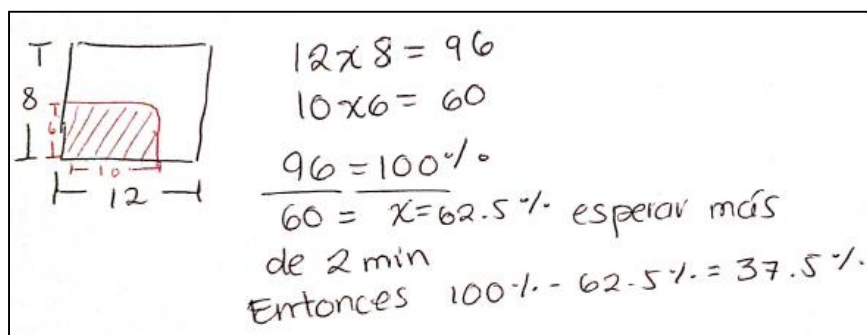 8
6
10
12
12x8=96
10x6=60
96=100%
60= x=62.5% esperar más
de 2 min
Entonces 100%-62.5%=37.5%